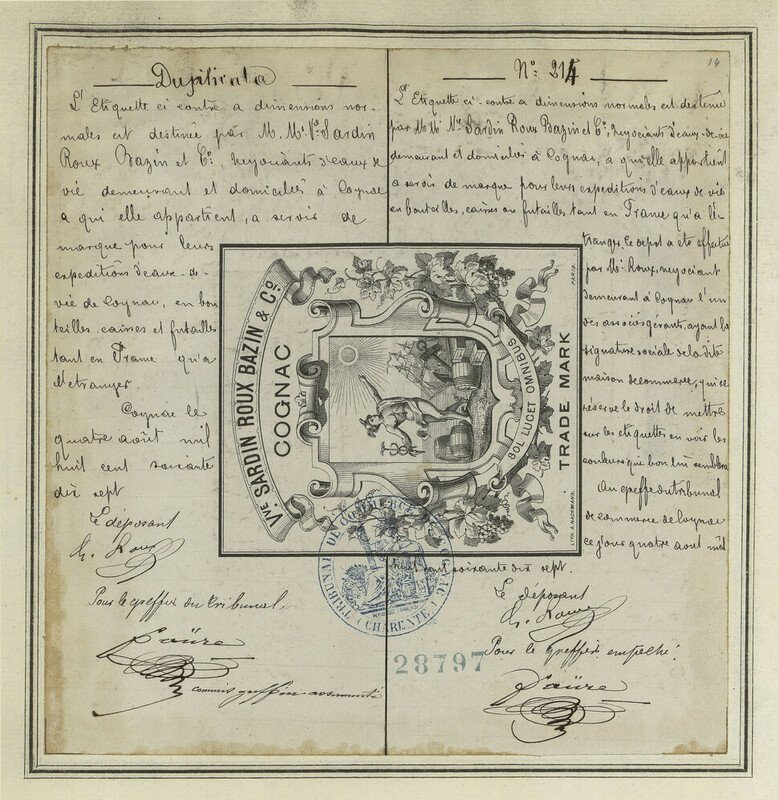 14
Duplicata
L'Etiquette ci contre a dimensions nor-
males est destinée par M. Mrs Vve Sardin
Roux Bazin et Cie, negociants d'eaux de
vie demeurant et domiciliés à Cognac
a qui elle appartient, a servir de
marque pour leurs
expeditions d'eaux-de-
vie de Cognac, en bou
teilles, caisses et futailles
tant en France qu'a
l'etranger.
Cognac le
quatre aout mil
huit cent soixante
dix sept
Le déposant
Ch. Roux
Pour le greffier du tribunal.
Faure
commis greffier assermenté
No. 214
L'Etiquette ci-contre a dimensions normales est destinée
par M.M. Vve Sardin Roux Bazin et Cie, negociants d'eaux-de-vie
demeurant et domiciliés à Cognac, a qu'elle appartient
a servir de marque pour leurs expeditions d'eaux de vie
en bouteilles, caisses ou futailles tant en France qu'a l'é-
tranger, le depot a été effectué
par Mr. Roux, negociant
demeurant à Cognac l'un
des associés gérants, ayant la
signature sociale de la dite
maison de commerce, qui se
réserve le droit de mettre
sur les étiquettes en voir les
couleurs que bon lui semblera
Au greffe du tribunal
de commerce de Cognac
ce jour quatre aout mil
huit cent soixante dix sept.
Le déposant
Ch. Roux
Pour le greffier empeché.
Faure
VVE. SARDIN ROUX BAZIN & CO.
COGNAC
SOL LUCET OMNIBUS
TRADE MARK
PARIS.
LITH. A. NACHMANN.
TRIBUNAL DE COMMERCE COGNAC
(CHARENTE)
28797